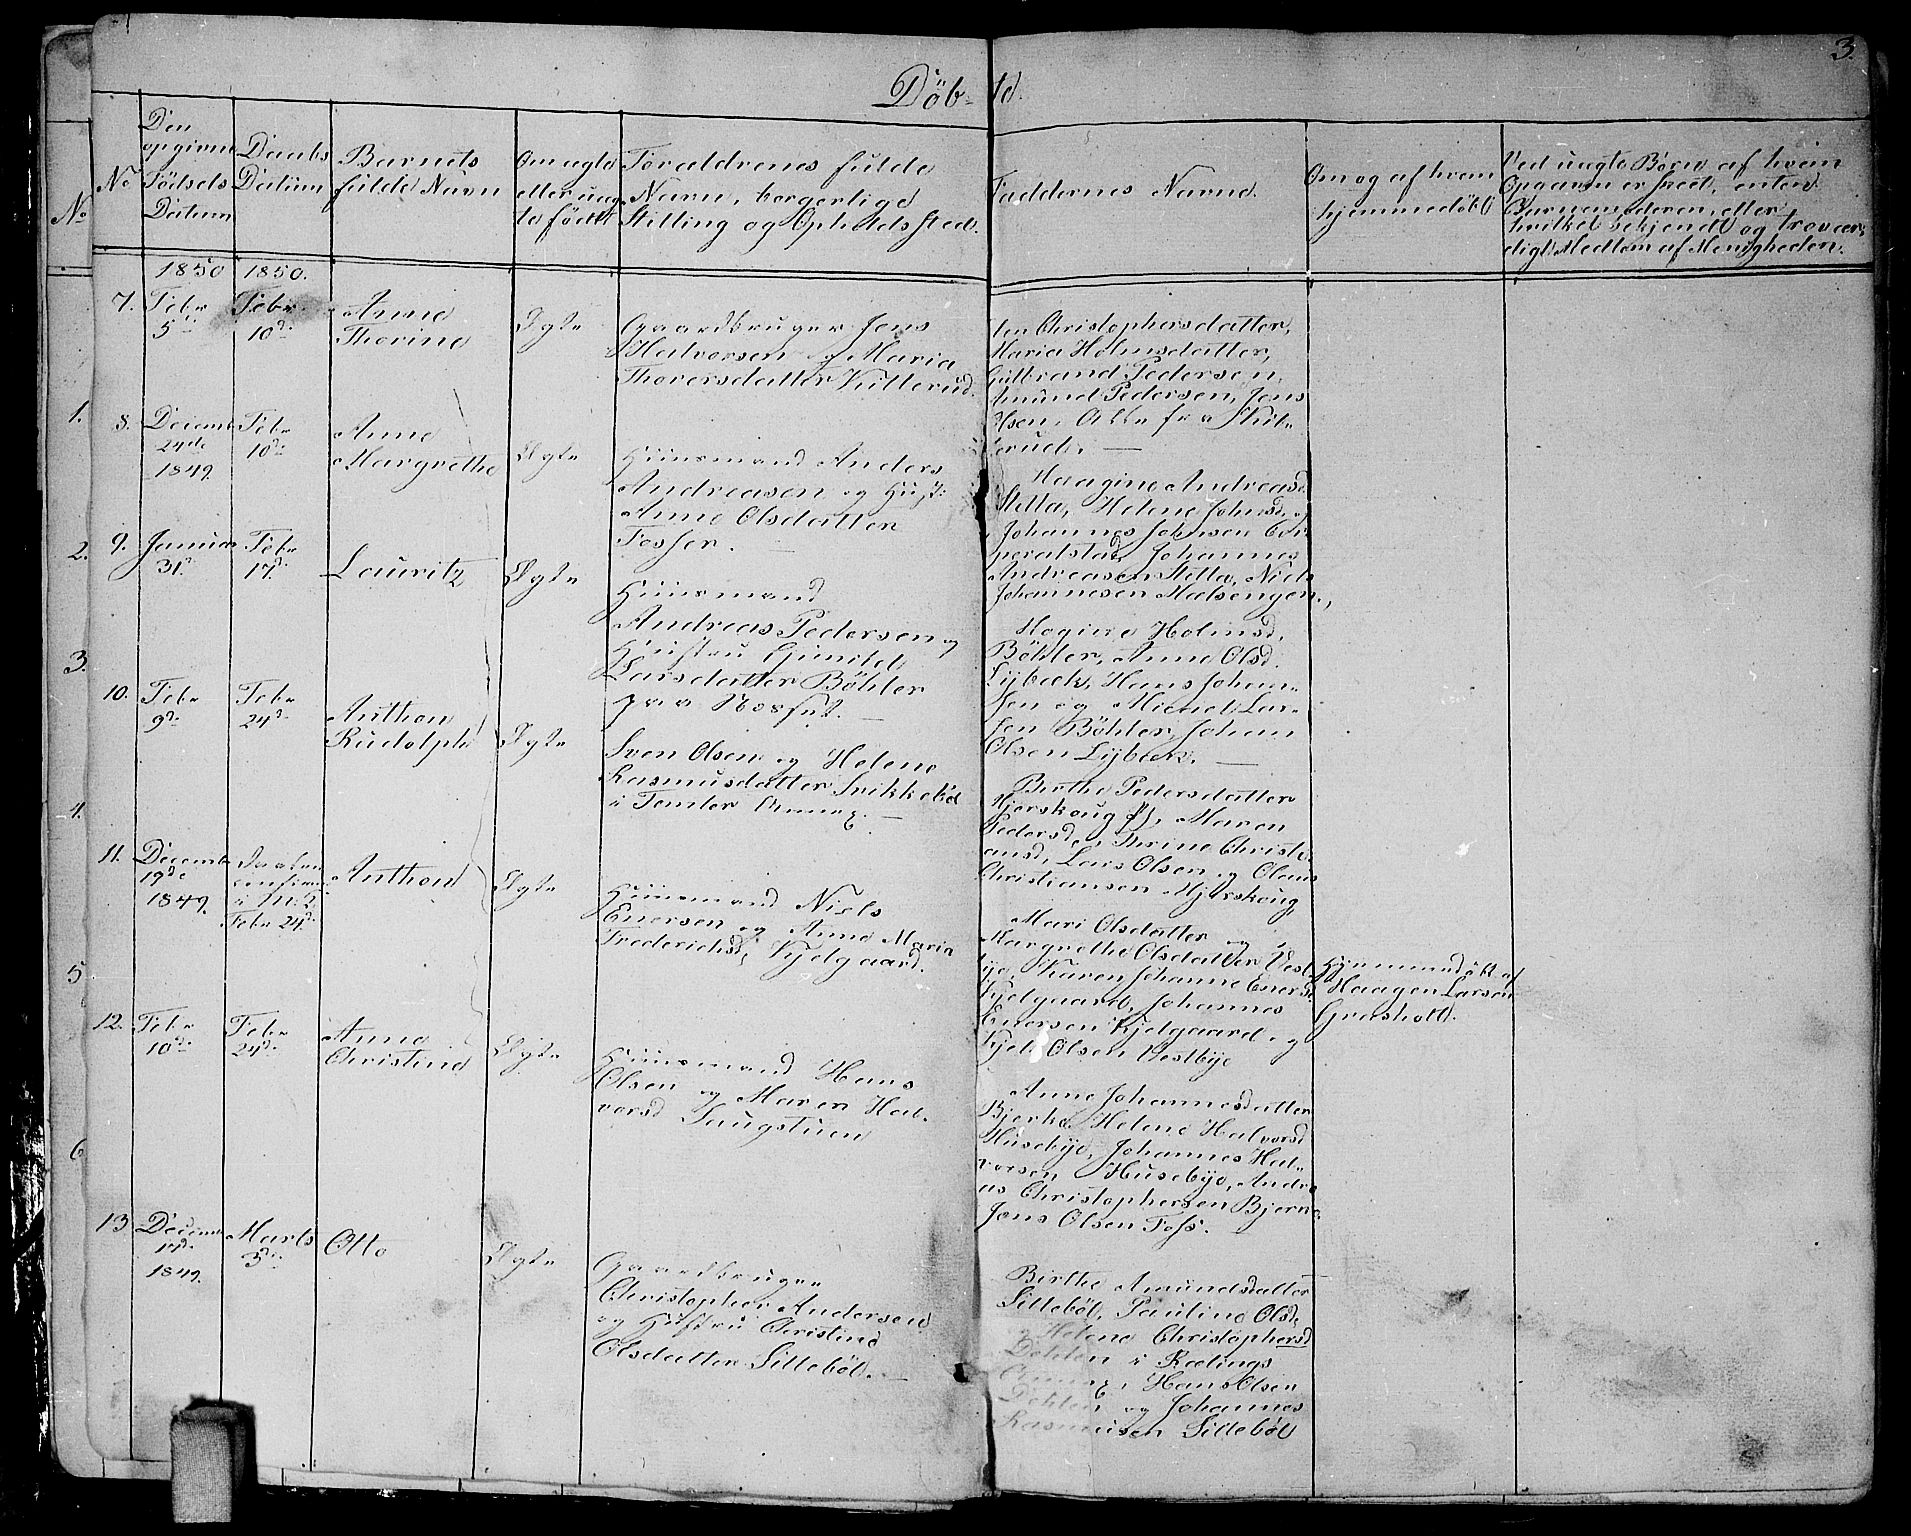 3.
Döbte.
No
No
Den
opgivne
Födsels
Datum
Daabs
Datum
Barnets
fulde Navn
Om ægte
eller uæg-
te födt
Forældrenes fulde
Navn, borgerlige
Stilling og Opholdssted.
Faddernes Navne.
Om og af hvem
hjemmedöbt
Ved uægte Börn af hvem
Opgaven er skeet, enten
Barnemoderen, eller
hvilket bekjendt og trovær-
digt Medlem af Menigheden.
1850 1850.
7. Febr
5te
Febr
10de
Anne
Thorine
Ægte
Gaardbruger Jens
Halvorsen og Maria
Thoversdatter Kutterud.
Christophersdatter,
Maria Holmsdatter,
Gulbrand Pedersen,
Amund Pedersen, Jens
Olsen, Alle fra
rud. —
8. Decemb
24de
1849.
Febr
10de
Anne
Margrethe
Ægte
Huusmand Anders
Andreasen og Hust:
Anne Olsdatter
Fosser. —
Haagine Andreasd.
Stetta, Helene Johnsd. og
Johannes Johnsen Cor-
peralstad, Johannes
Andreasen Stetta, Niels
Johannesen Malsengen.
9. Januar
31te
Febr
17de
Lauritz
Ægte
Huusmand
Andreas Pedersen og
Hustru Gunild
Larsdatter Böhler
paa —
Hogine Holmsd.
Böhler, Anne Olsd.
Lybæk, Hans Johan-
sen og Michel Lar-
sen Böhler, Johan
Olsen Lybæk. —
10. Febr
9de
Febr
24de
Anthon
Rudolph
Ægte
Sven Olsen og Helene
Rasmusdatter Svikkeböl
i Annex. —
Birthe Pedersdatter
Mjerskoug, Maren
Pedersd., Thrine Christi-
ansd, Lars Olsen og Olaus
Christiansen Mjerskoug
11. Decemb
19de
1849.
Daaben
confirm:
i
Febr 24de
Anthon
Ægte
Huusmand Niels
Enersen og Anne Maria
Frederichsd, Kjelgaard.
Mari Olsdatter og
Margrethe Olsdatter Vest-
bye, Karen Johanne Enersd
Kjelgaard, Johannes
Enersen Kjelgaard og
Kjel Olsen Vestbye
Hjemmedöbt af
Haagen Larsen
Græsholt.
12. Febr
10de
Febr
24de
Anne
Christine
Ægte
Huusmand Hans
Olsen og Maren Hal-
vorsd Haugstuen
Anne Johannesdatter
Bjerke, Helene Halvorsd
Husebye, Johannes Hal-
vorsen Husebye, Andre
as Christophersen Bjerke
Jens Olsen Foss.
13 Decemb
17de
1849.
Marts
3de
Otto
Ægte
Gaardbruger
Christopher Andersen
og Hustru Christine
Olsdatter Silleböl. —
Birthe Amundsdatter
Silleböl, Pauline Olsd,
og Helene Christophersd
Dehlen i Rælings
Annex, Hans Olsen
Dehlen og Johannes
Rasmusen Silleböl
1.
2.
3.
4.
5
6